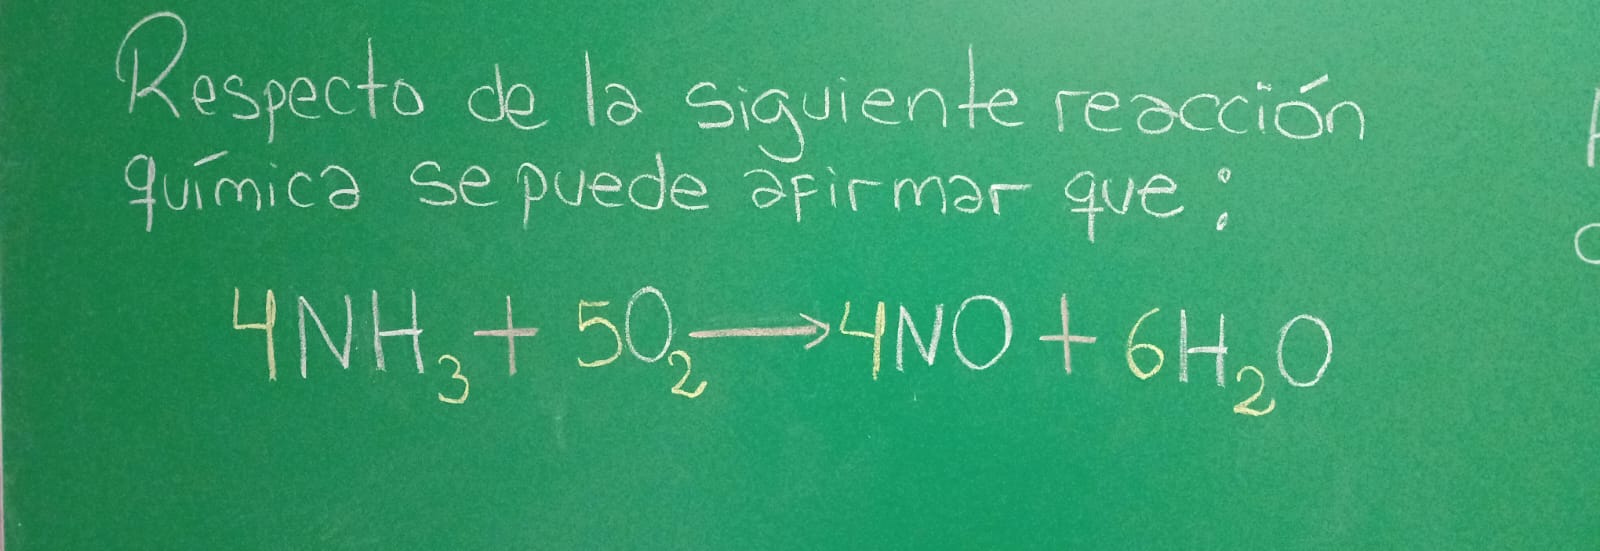 Respecto de la siguiente reacción
química se puede afirmar que:
4NH₃ + 5O₂ → 4NO + 6H₂O